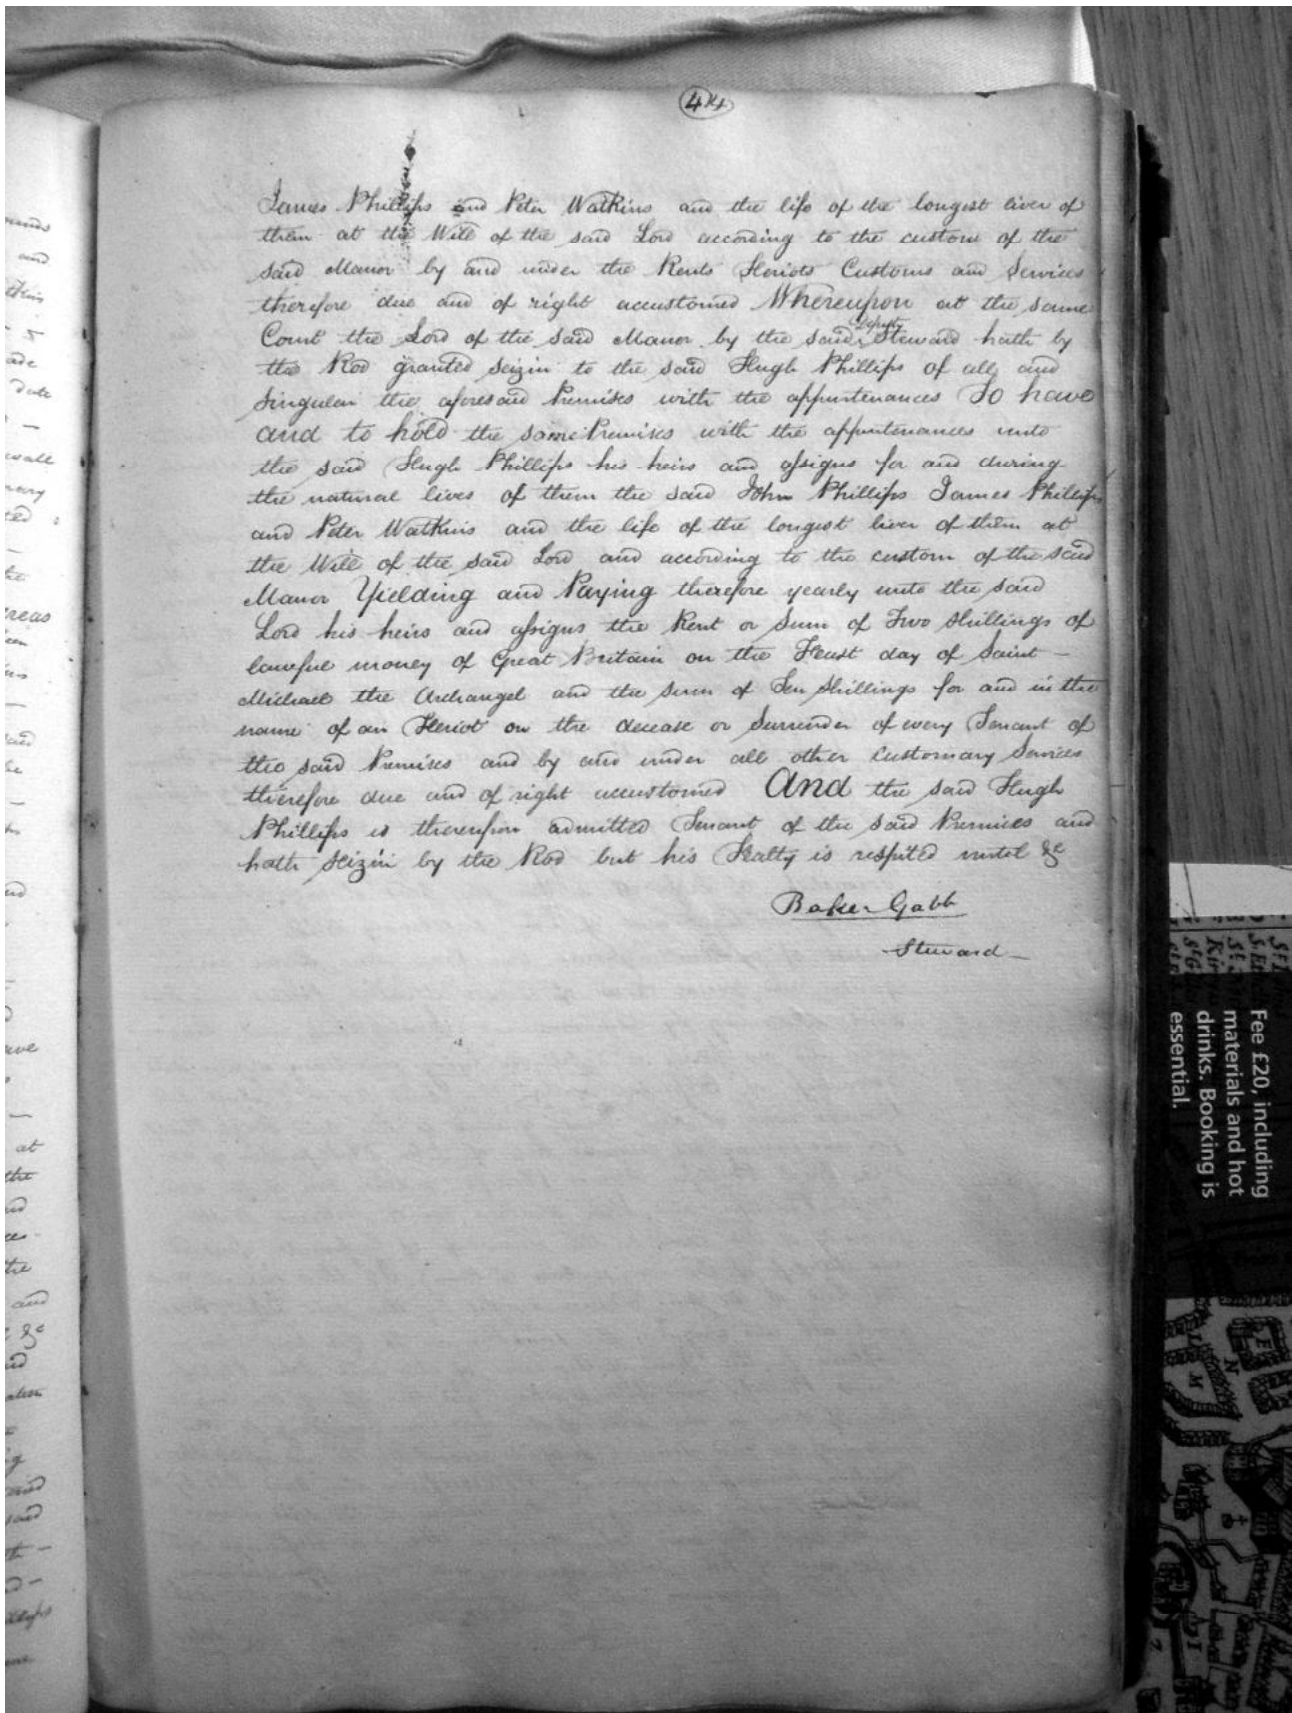 44
James Phillips and Peter Watkins and the life of the longest liver of
them at the Will of the said Lord according to the custom of the
said Manor by and under the Rents Heriots Customs and Services
therefore due and of right accustomed Whereupon at the same
Court the Lord of the said Manor by the said Deputy Steward hath by
the Rod granted seizin to the said Hugh Phillips of all and
singular the aforesaid Premises with the appurtenances To have
and to hold the same Premises with the appurtenances unto
the said Hugh Phillips his heirs and assigns for and during
the natural lives of them the said John Phillips James Phillips
and Peter Watkins and the life of the longest liver of them at
the Will of the said Lord and according to the custom of the said
Manor Yielding and Paying therefore yearly unto the said
Lord his heirs and assigns the Rent or Sum of Two Shillings of
lawful money of Great Britain on the Feast day of Saint –
Michael the Archangel and the sum of Ten Shillings for and in the
name of an Heriot on the decease or Surrender of every Tenant of
the said Premises and by and under all other Customary Services
therefore due and of right accustomed And the said Hugh
Phillips is thereupon admitted Tenant of the said Premises and
hath Seizin by the Rod but his Fealty is respited until &c
Baker Gabb
Steward –
Fee £20, including
materials and hot
drinks. Booking is
essential.